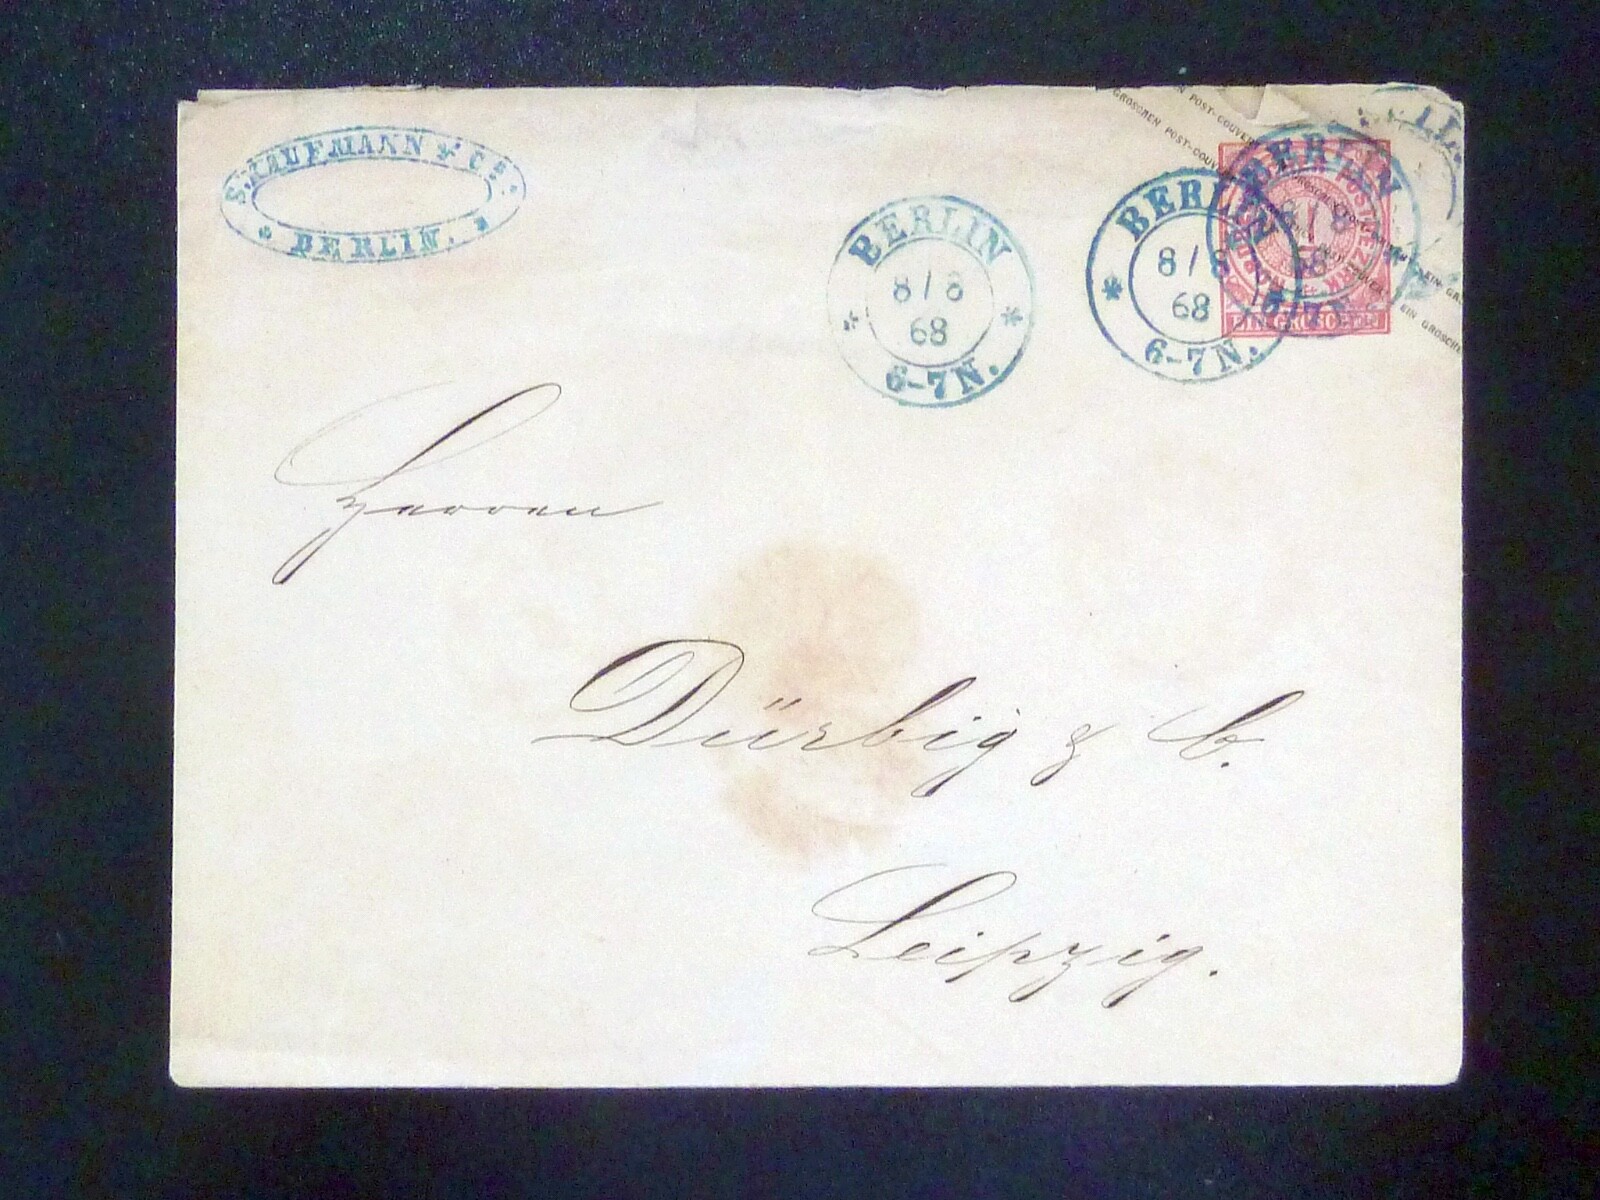 S. KAUFMANN & Co.
* BERLIN. *
BERLIN
8 / 8
68
* 6-7N. *
BERLIN
8 / 8
68
* 6-7N.
BERLIN
8 / 8
68
EIN GROSCHEN
GROSCHEN POST-COUVERT
POST-COUVERT
EIN GROSCHEN
Herren
Dürbig & C.
Leipzig.